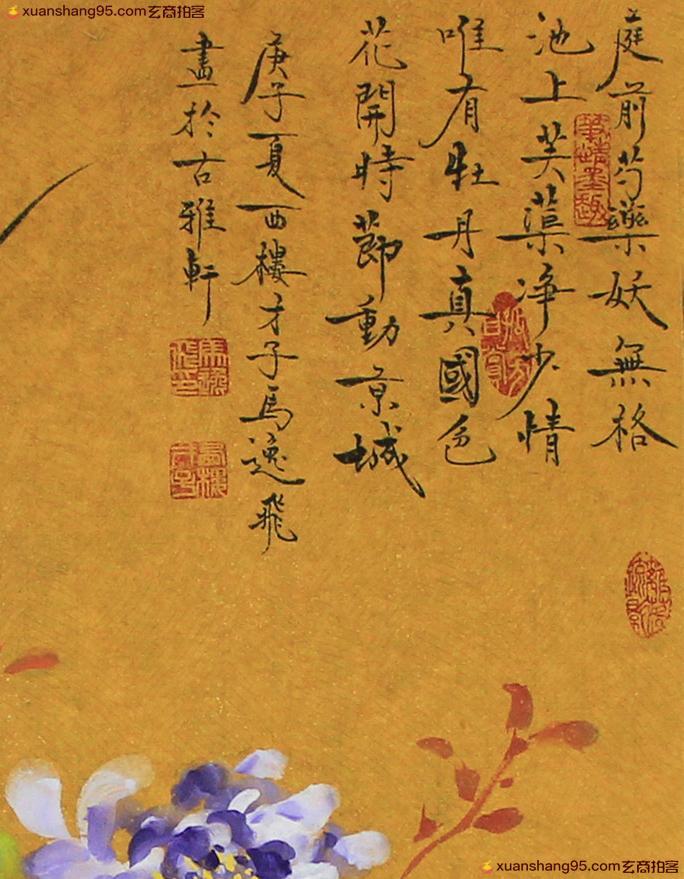 xuanshang95.com玄商拍客
xuanshang95.com玄商拍客
庭前芍藥妖無格
池上芙蕖净少情
唯有牡丹真國色
花開時節動京城
庚子夏西樓才子馬逸飛
畫於古雅軒
xuanshang95.com玄商拍客